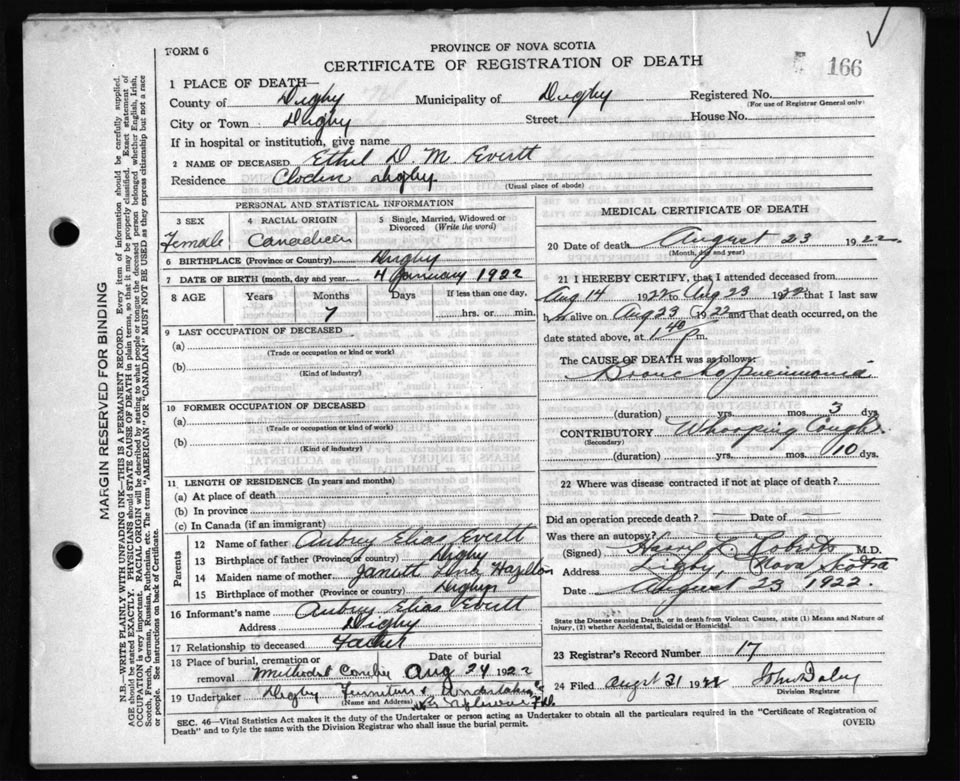 FORM 6
PROVINCE OF NOVA SCOTIA
CERTIFICATE OF REGISTRATION OF DEATH
166
1 PLACE OF DEATH—
County of Digby Municipality of Digby Registered No.
(For use of Registrar General only)
City or Town Digby Street House No.
If in hospital or institution, give name
2 NAME OF DECEASED Ethel D. M Evertt
Residence Digby
(Usual place of abode)
PERSONAL AND STATISTICAL INFORMATION
3 SEX 4 RACIAL ORIGIN 5 Single, Married, Widowed or Divorced (Write the word)
Female Canadien
6 BIRTHPLACE (Province or Country) Digby
7 DATE OF BIRTH (month, day and year) 4 January 1922
8 AGE Years Months Days If less than one day,
7 hrs. or min.
9 LAST OCCUPATION OF DECEASED
(a)
(Trade or occupation or kind or work)
(b)
(Kind of industry)
10 FORMER OCCUPATION OF DECEASED
(a)
(Trade or occupation or kind of work)
(b)
(Kind of industry)
11 LENGTH OF RESIDENCE (In years and months)
(a) At place of death
(b) In province
(c) In Canada (if an immigrant)
Parents
12 Name of father Aubrey Elias Evertt
13 Birthplace of father (Province or country) Digby
14 Maiden name of mother Hazelton
15 Birthplace of mother (Province or country) Digby
16 Informant's name Aubrey Elias Evertt
Address Digby
17 Relationship to deceased Father
18 Place of burial, cremation or removal Methodist Date of burial Aug 24 1922
19 Undertaker Digby Furniture & Undertaking
(Name and Address)
MEDICAL CERTIFICATE OF DEATH
20 Date of death August 23 1922
(Month, day and year)
21 I HEREBY CERTIFY, that I attended deceased from
Aug 14 1922 to Aug 23 1922 that I last saw
h alive on Aug 23 1922 and that death occurred, on the
date stated above, at 1 40 p m.
The CAUSE OF DEATH was as follows:
Broncho pneumonia
(duration) yrs. mos. 3 dys.
CONTRIBUTORY Whooping Cough
(Secondary)
(duration) yrs. mos. 10 dys.
22 Where was disease contracted if not at place of death?
Did an operation precede death? Date of
Was there an autopsy?
(Signed) Roberts M.D.
Address Digby, Nova Scotia
Date August 23 1922
State the Disease causing Death, or in death from Violent Causes, state (1) Means and Nature of Injury, (2) whether Accidental, Suicidal or Homicidal.
23 Registrar's Record Number 17
24 Filed August 31 1922 John Daley
Division Registrar
SEC. 46—Vital Statistics Act makes it the duty of the Undertaker or person acting as Undertaker to obtain all the particulars required in the "Certificate of Registration of
Death" and to fyle the same with the Division Registrar who shall issue the burial permit. (OVER)
MARGIN RESERVED FOR BINDING
N.B.—WRITE PLAINLY WITH UNFADING INK—THIS IS A PERMANENT RECORD. Every item of information should be carefully supplied.
AGE should be stated EXACTLY. PHYSICIANS should STATE CAUSE OF DEATH in plain terms, so that it may be properly classified. Exact statement of
OCCUPATION is very important. RACIAL ORIGIN will be described by stating to what people or tongue the deceased person belonged whether English, Irish,
Scotch, French, German, Russian, Ruthenian, etc. The terms "AMERICAN" OR "CANADIAN" MUST NOT BE USED as they express citizenship but not a race
or people. See instructions on back of Certificate.